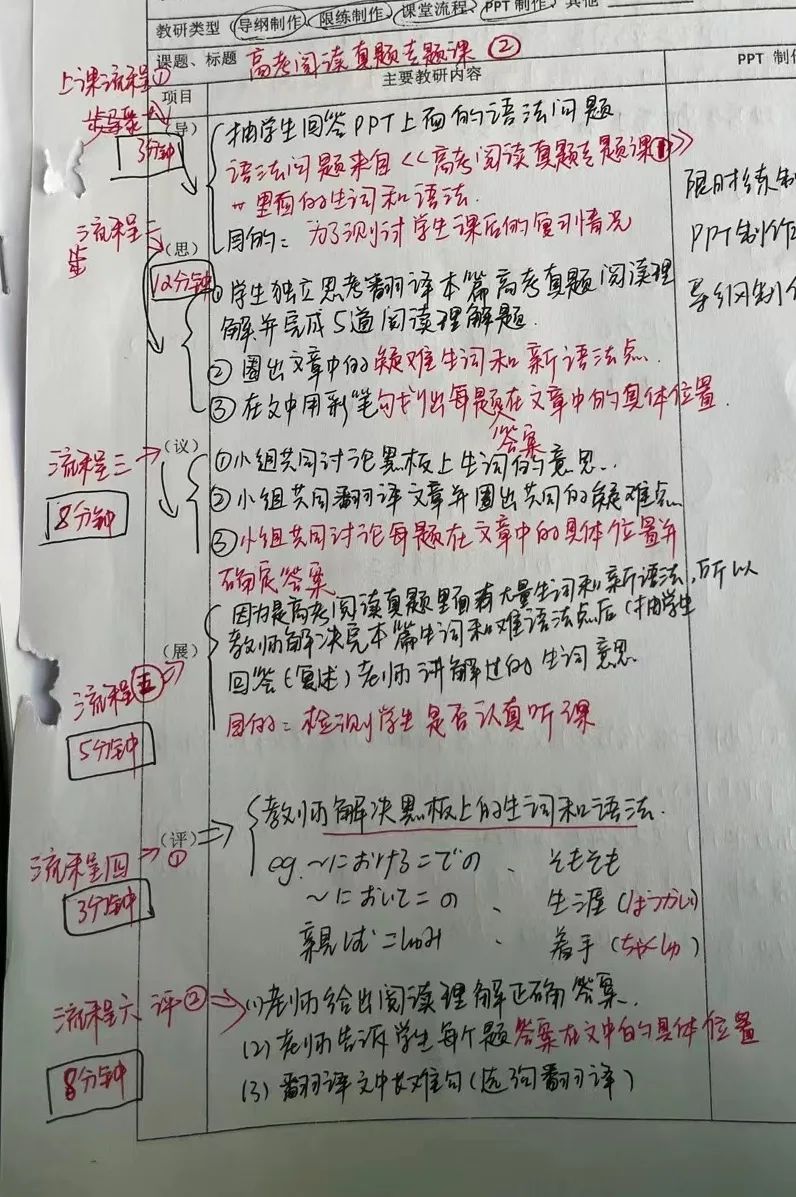 教研类型 导纲制作、限练制作、课堂流程、PPT制作、其他
课题、标题 高考阅读真题专题课②
项目 主要教研内容 PPT 制
上课流程①
步骤
3分钟
(导)
抽学生回答PPT上面的语法问题
语法问题来自《高考阅读真题专题课①》
里面的生词和语法.
目的：为了测讨学生课后的复习情况
限时练制
PPT制作
导纲制作
流程二
(思)
12分钟
①学生独立思考翻译本篇高考真题阅读理
解并完成5道阅读理解题.
②圈出文章中的疑难生词和新语法点.
③在文中用彩笔勾划出每题在文章中的具体位置.
答案
流程三
(议)
8分钟
①小组共同讨论黑板上生词的意思.
②小组共同翻译文章并圈出共同的疑难点
③小组共同讨论每题在文章中的具体位置并
确定答案
流程五
(展)
5分钟
因为是高考阅读真题里面有大量生词和新语法,所以
教师解决完本篇生词和难语法点后(抽学生
回答(复述)老师讲解过的生词意思
目的：检测学生是否认真听课
流程四
(评)
①
3分钟
教师解决黑板上的生词和语法.
eg. ~における=での、 そもそも
~において=の、 生涯
親しむ=しゅみ、 着手(ちゃくしゅ)
流程六 评②
8分钟
(1)老师给出阅读理解正确答案.
(2)老师告诉学生每个题答案在文中的具体位置
(3)翻译文中长难句(选词翻译)